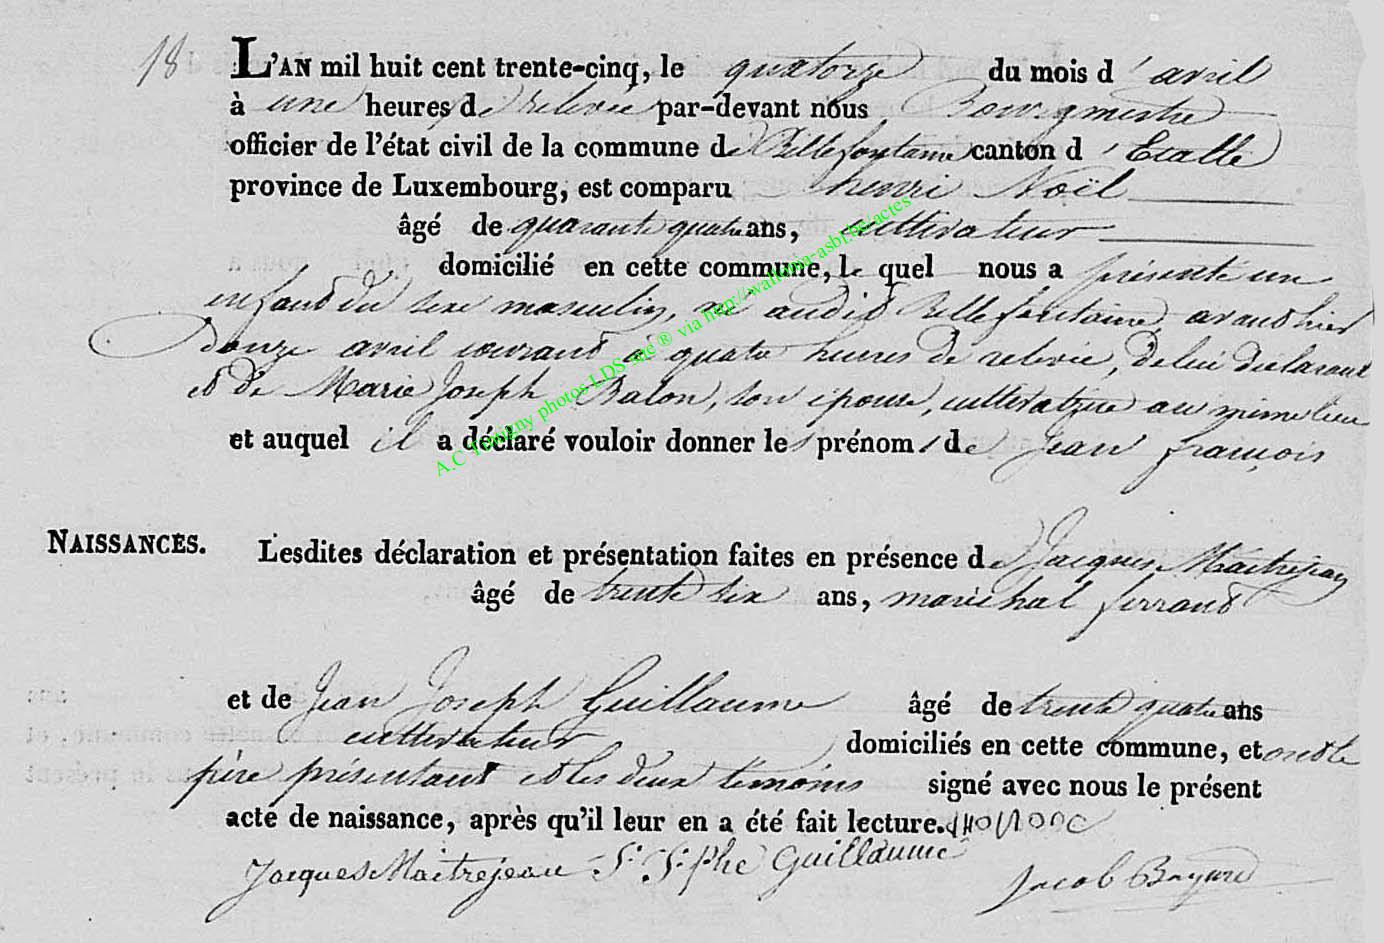 18 L'AN mil huit cent trente-cinq, le quatorze du mois d'avril
à une heures de relevée par-devant nous Bourgmestre
officier de l'état civil de la commune de Bellefontaine canton d'Etalle
province de Luxembourg, est comparu henri Noël
âgé de quarante quatre ans, cultivateur
domicilié en cette commune, le quel nous a présenté un
enfant du sexe masculin, né audit Bellefontaine, avant hier
douze avril courant à quatre heures de relevée, de lui déclarant
et de Marie Joseph Balon, son épouse, cultivatrice au même lieu
et auquel il a déclaré vouloir donner les prénoms de Jean françois
NAISSANCES. Lesdites déclaration et présentation faites en présence de Jacques Maitrejean
âgé de trente six ans, maréchal ferrant
et de Jean Joseph Guillaume âgé de trente quatre ans
cultivateur domiciliés en cette commune, et ont le
père présentant et les deux témoins signé avec nous le présent
acte de naissance, après qu'il leur en a été fait lecture.
Jacques Maitrejean J: J:phe Guillaume Jacob Bayard
A.C Tintigny photos LDS sne ® via http://wallonia-asbl.be/actes